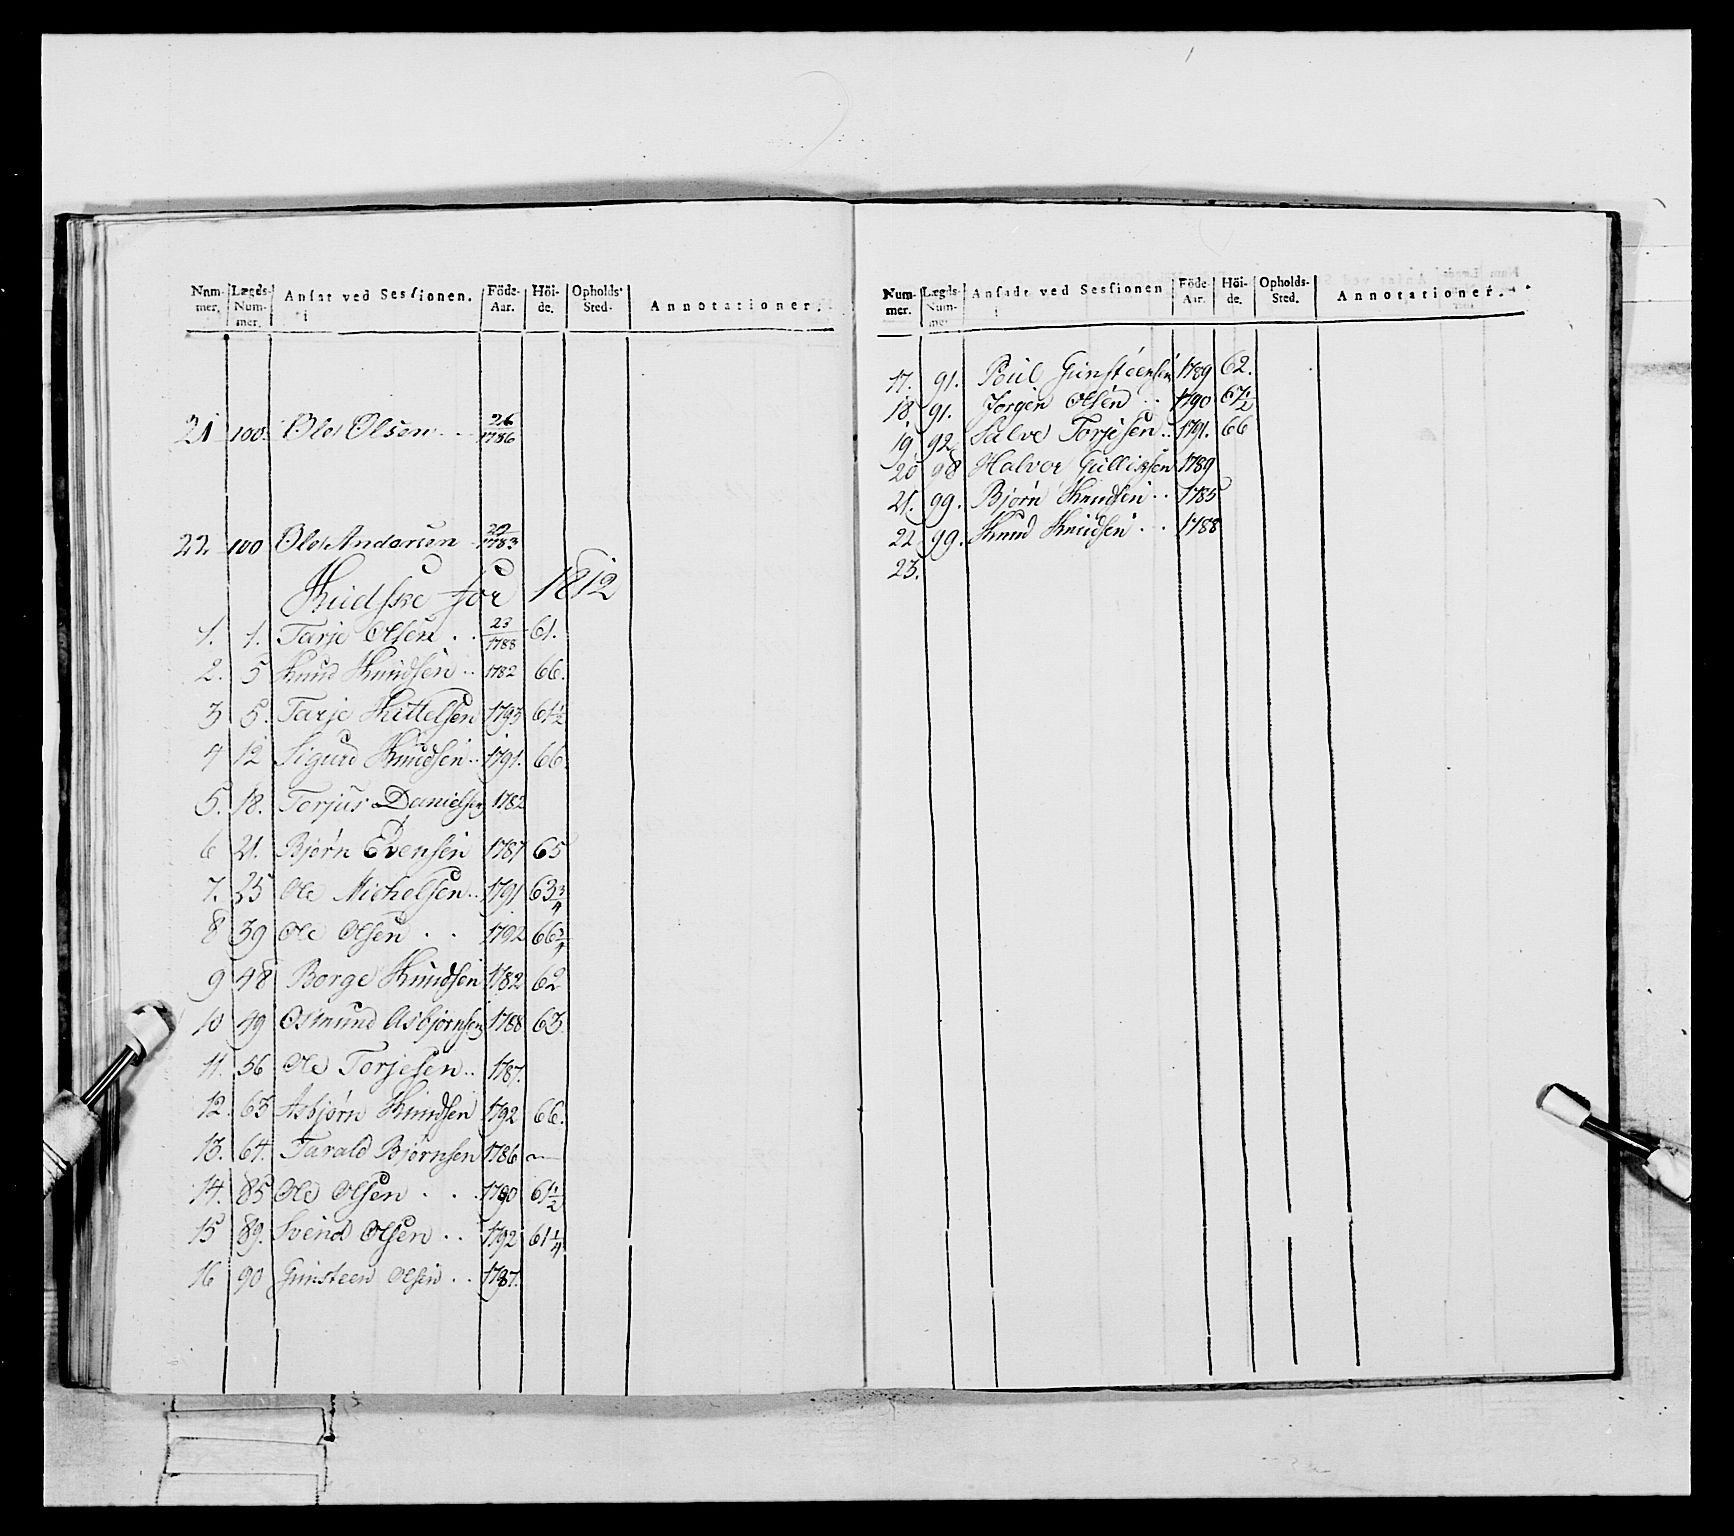 Num-mer. Lægds-Num-mer. Ansat ved Sessionen. Föde-Aar. Höi-de. Opholds-Sted. Annotationer.
21 100. Ole Olsen 26/1786
22. 100 Ole Andersen 1783
Kudske for 1812
1. 1. Tarje Olsen . . 23/1788 61.
2. 5 Knud Knudsen . . 1782 66.
3 5. Tarje Kittelsen 1793 61 1/2
4 12 Sigurd Knudsen . . 1791. 66.
5. 18. Torjus Danielsen 1782
6 21. Bjørn Evensen 1787 65
7. 25 Ole Michelsen . . 1791 63 3/4
8 39 Ole Olsen . . 1792 66 3/4
9 48 Borge Knudsen 1782 62
10 49 Osmund Asbjørnsen 1788 63
11. 56 Ole Torjesen . . 1787.
12. 63 Asbjørn Knudsen 1792 66.
13. 64. Tarald Bjørnsen 1786 —
14. 85 Ole Olsen . . . 1790 61 1/2
15 89. Svend Olsen . . 1792 61 1/4
16 90 Gunsteen Olsen . . 1787.
Num-mer. Lægds-Num-mer. Ansadt ved Sessionen Föde-Aar. Höi-de. Opholds-Sted. Annotationer.
17. 91. Poul Gunsteensen 1789 62.
18 91. Jørgen Olsen . . 1790 67 1/2
19 92 Salve Torjesen . . 1791. 66
20 98 Halvor Gulliksen 1789
21. 99. Bjørn Knudsen . . 1785
22 99. Knud Knudsen . . 1788
23.